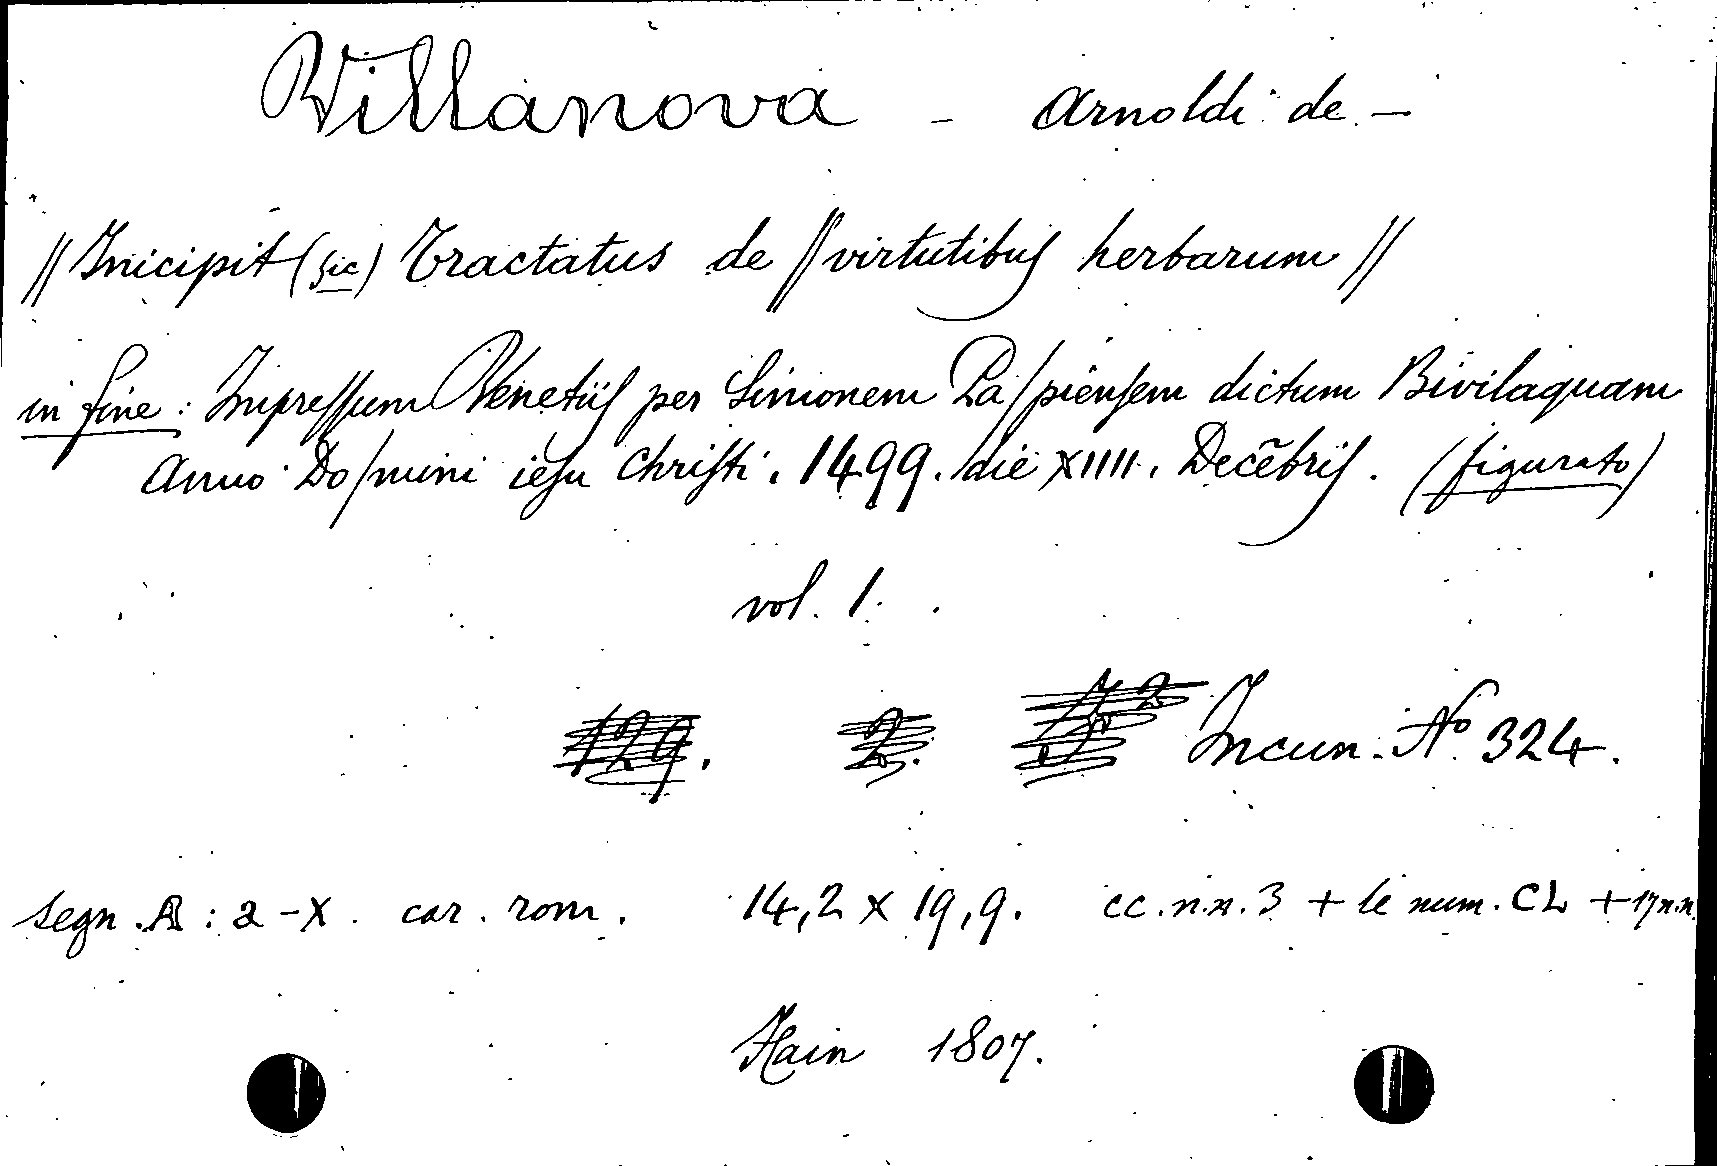 Villanova - Arnoldi de -
// Inicipit (sic) Tractatus de // virtutibuſ herbarum //
in fine: Impreſſum Venetiiſ per Simonem Pa/pienſem dictum Bivilaquam
Anno Do/mini ieſu Chriſti. 1499. die XIIII. Decēbriſ. (figurato)
vol. 1.
129. 2. Incun. Nº 324.
segn. A : a - X. car. rom. 14,2 x 19,9. cc. n.n. 3 + le num. CL + 17 n.n.
Hain 1807.